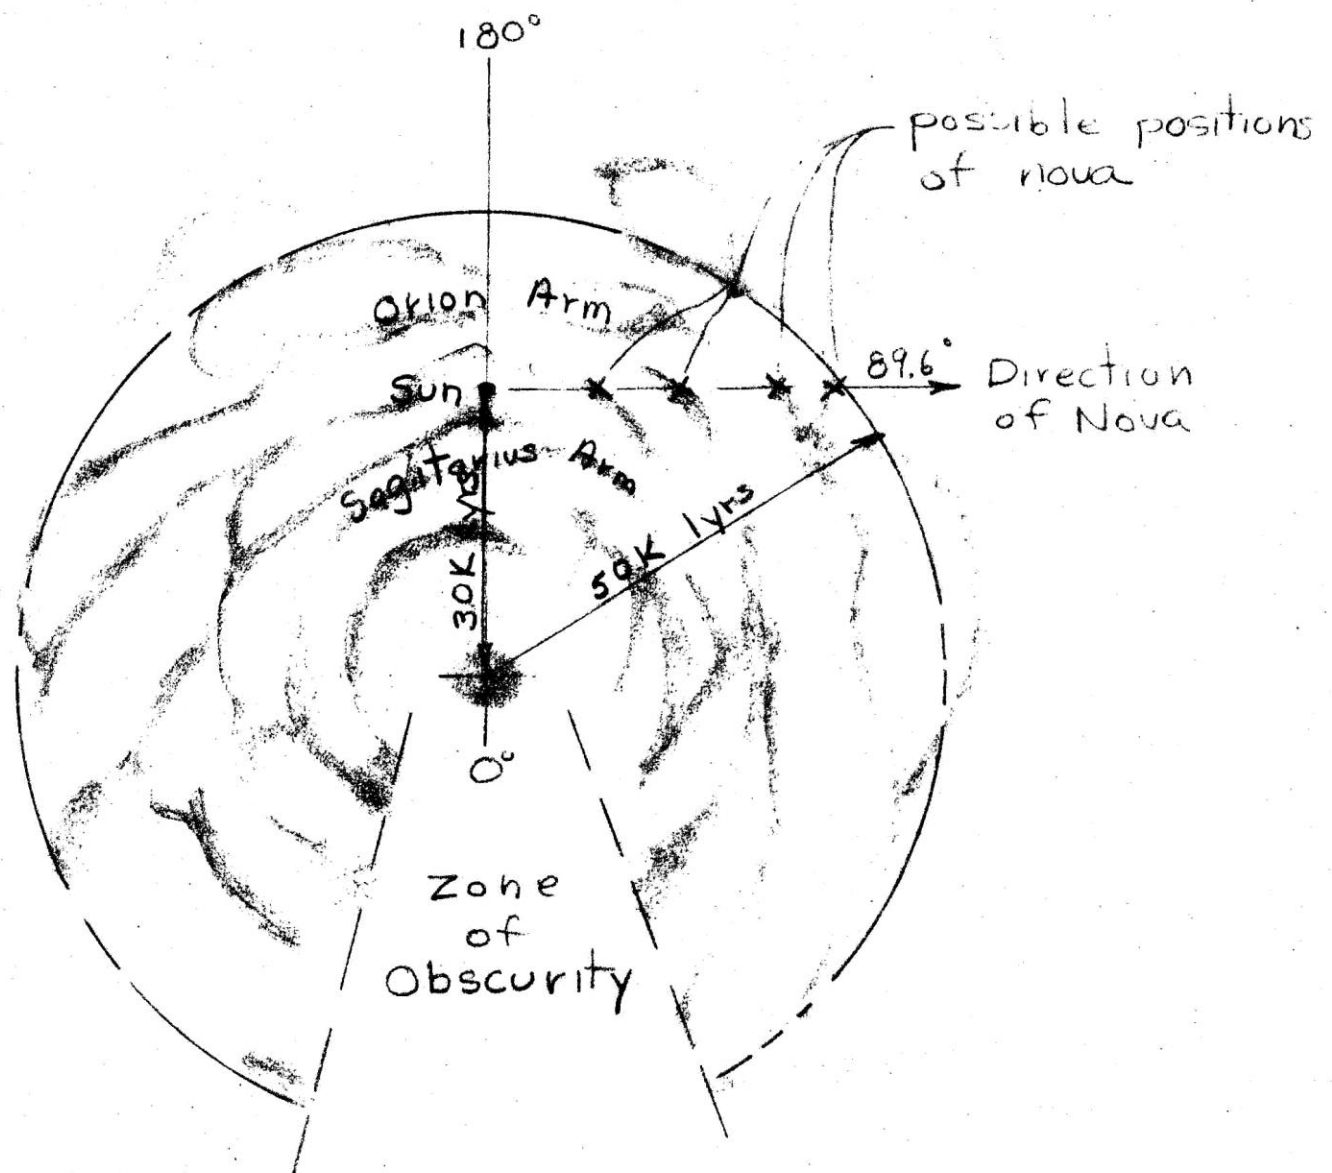 180°
possible positions
of nova
Orion Arm
Sun
89.6°
Direction
of Nova
Sagitarius Arm
30K
50K lyrs
0°
Zone
of
Obscurity